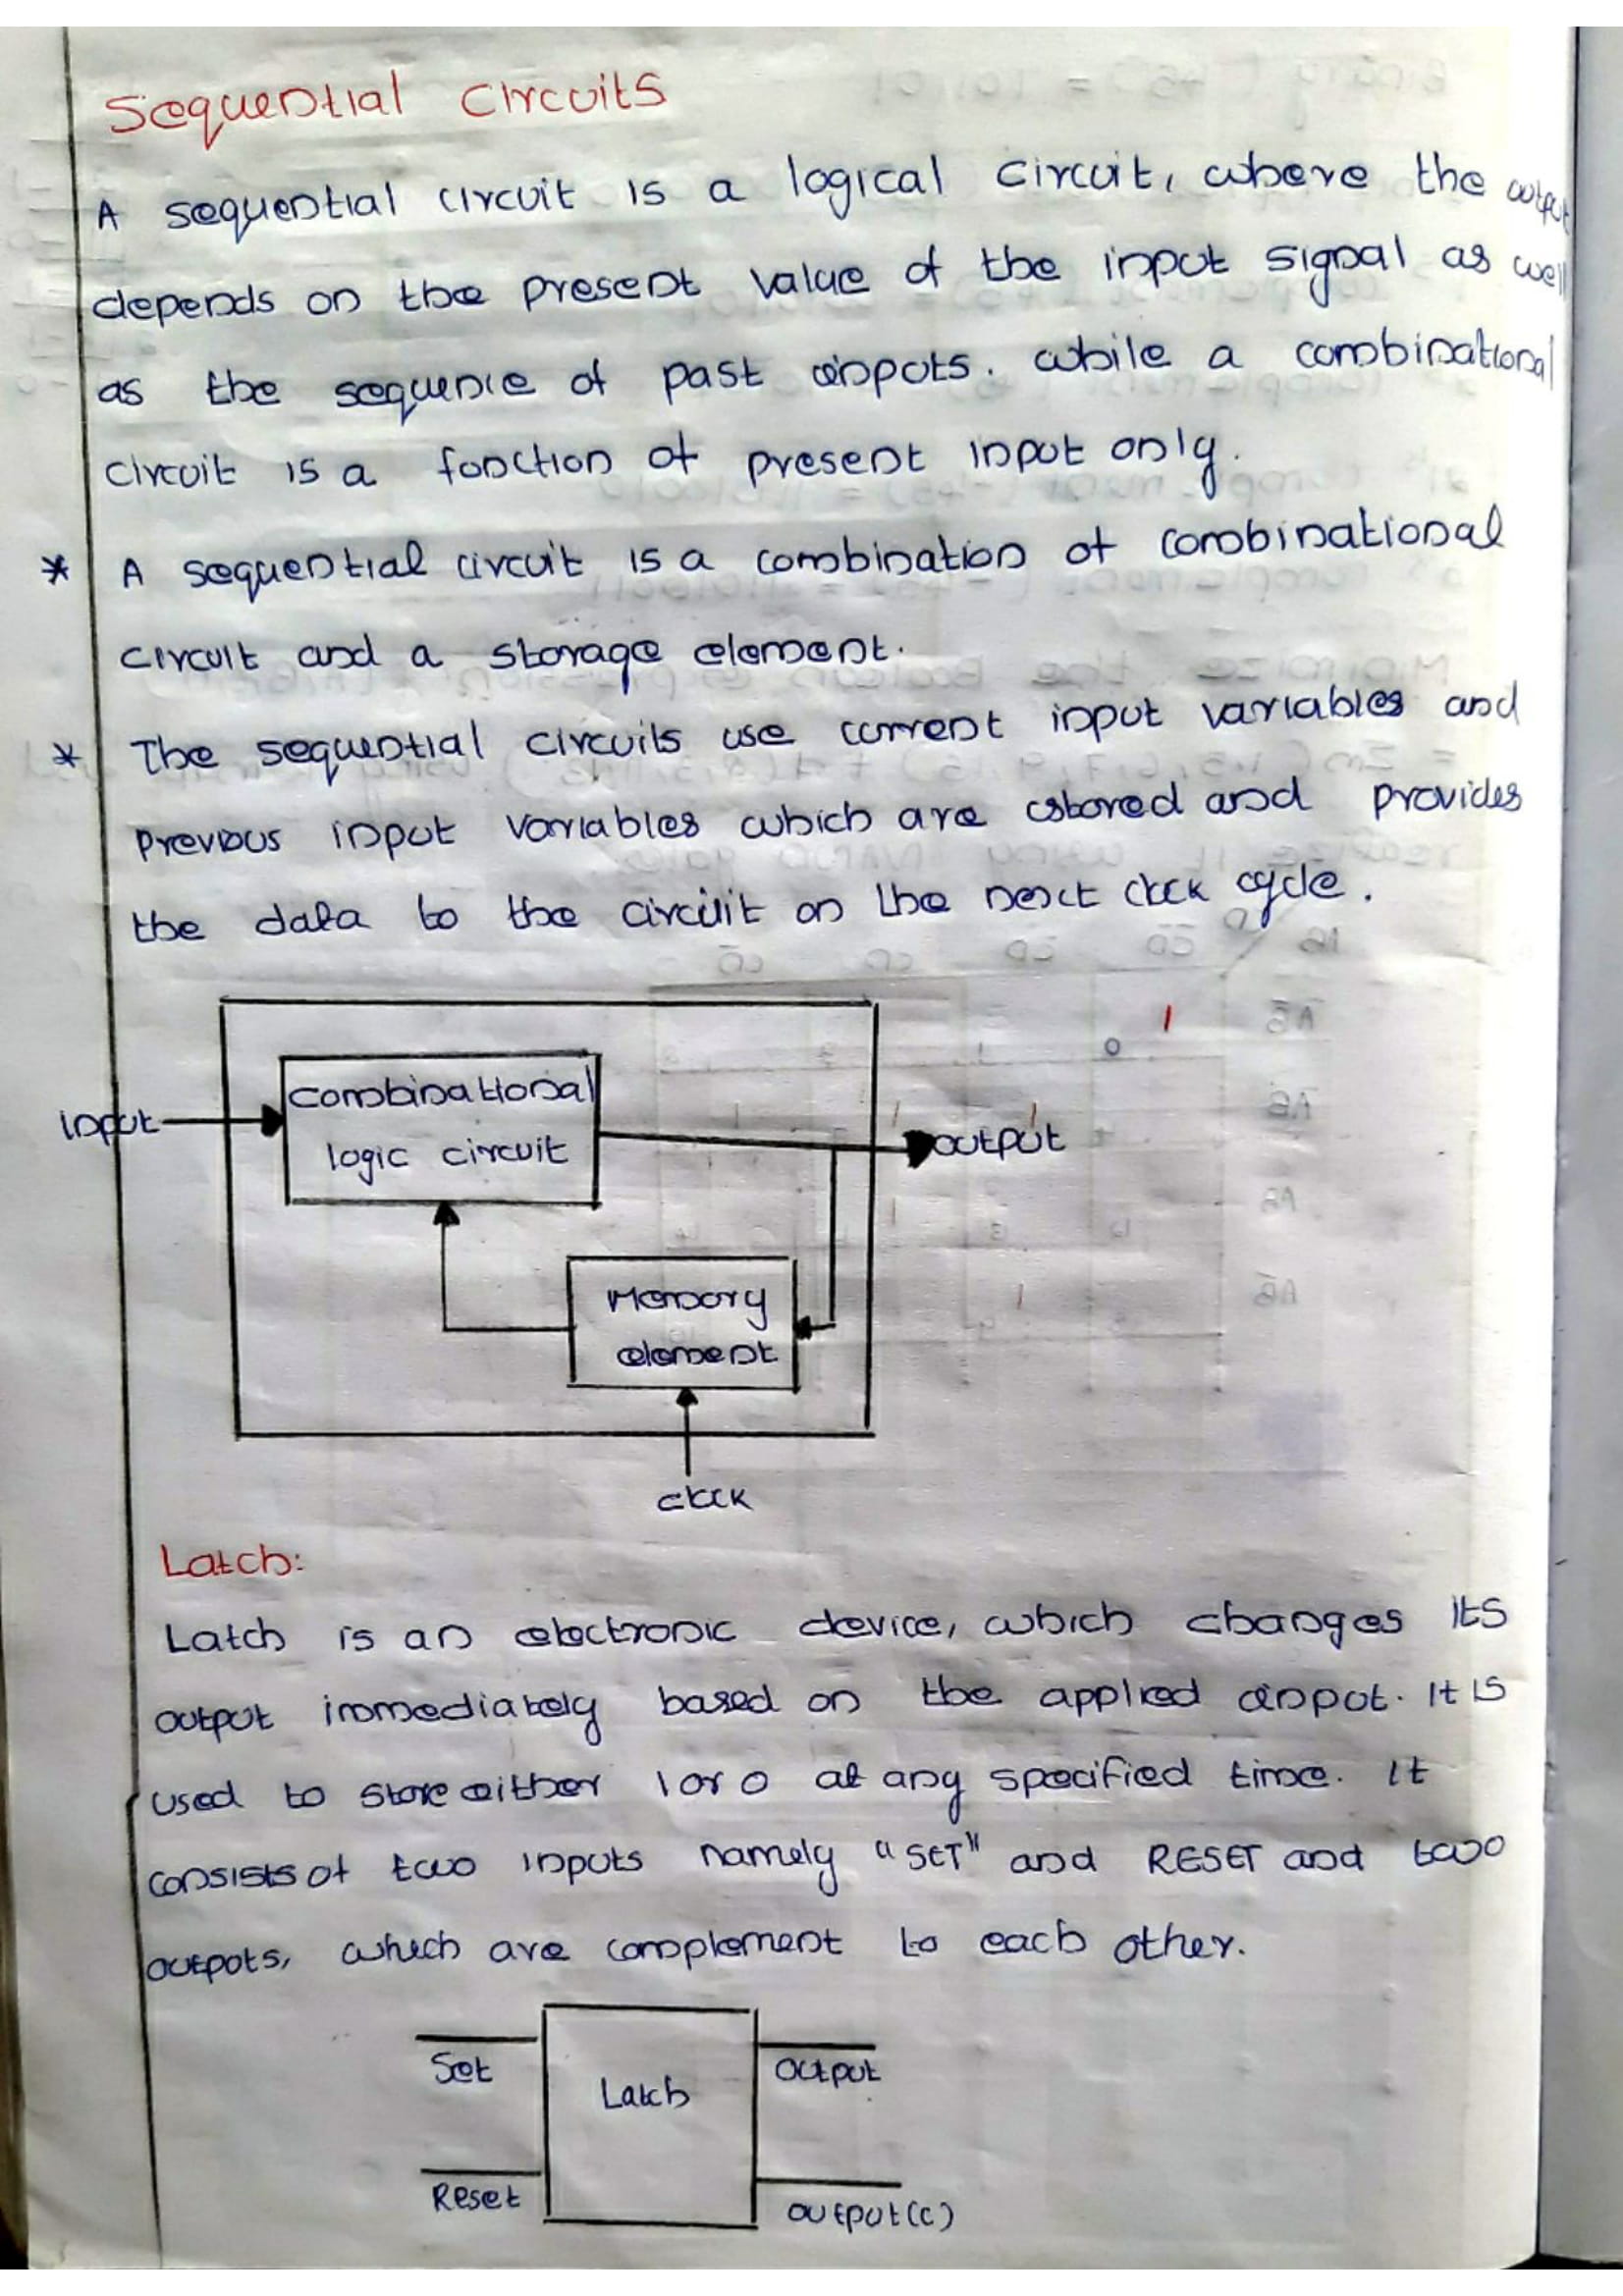 Sequential Circuits
A sequential circuit is a logical circuit, where the output
depends on the present value of the input signal as well
as the sequence of past inputs. while a combinational
circuit is a function of present input only.
* A sequential circuit is a combination of combinational
circuit and a storage element.
* The sequential circuits use current input variables and
previous input variables which are stored and provides
the data to the circuit on the next clock cycle.
Combinational
logic circuit
input
output
Memory
element
clock
Latch:
Latch is an electronic device, which changes its
output immediately based on the applied input. It is
used to store either 1 or 0 at any specified time. It
consists of two inputs namely "SET" and RESET and two
outputs, which are complement to each other.
Set
Latch
output
Reset
output(c)